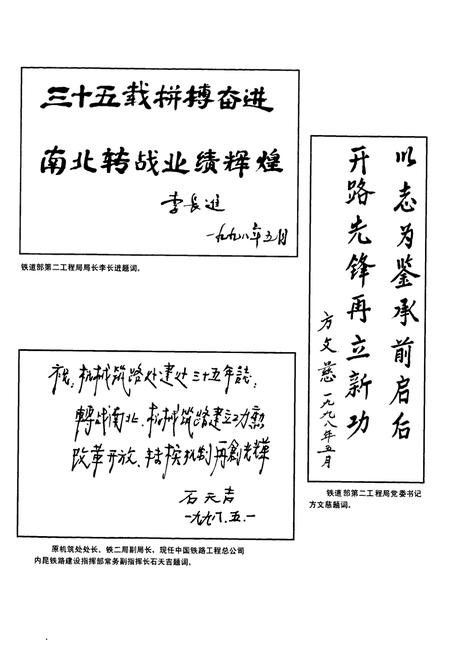 三十五载拼搏奋进
南北转战业绩辉煌
李长进
一九九八年五月
铁道部第二工程局局长李长进题词。
以志为鉴承前启后
开路先锋再立新功
方文慈 一九九八年五月
铁道部第二工程局党委书记
方文慈题词。
祝:机械筑路处建处三十五年誌:
轉战南北、机械筑路建立功勳
改革开放、转换机制再創光輝
石天吉
一九九八.五.一
原机筑处处长、铁二局副局长,现任中国铁路工程总公司
内昆铁路建设指挥部常务副指挥长石天吉题词。